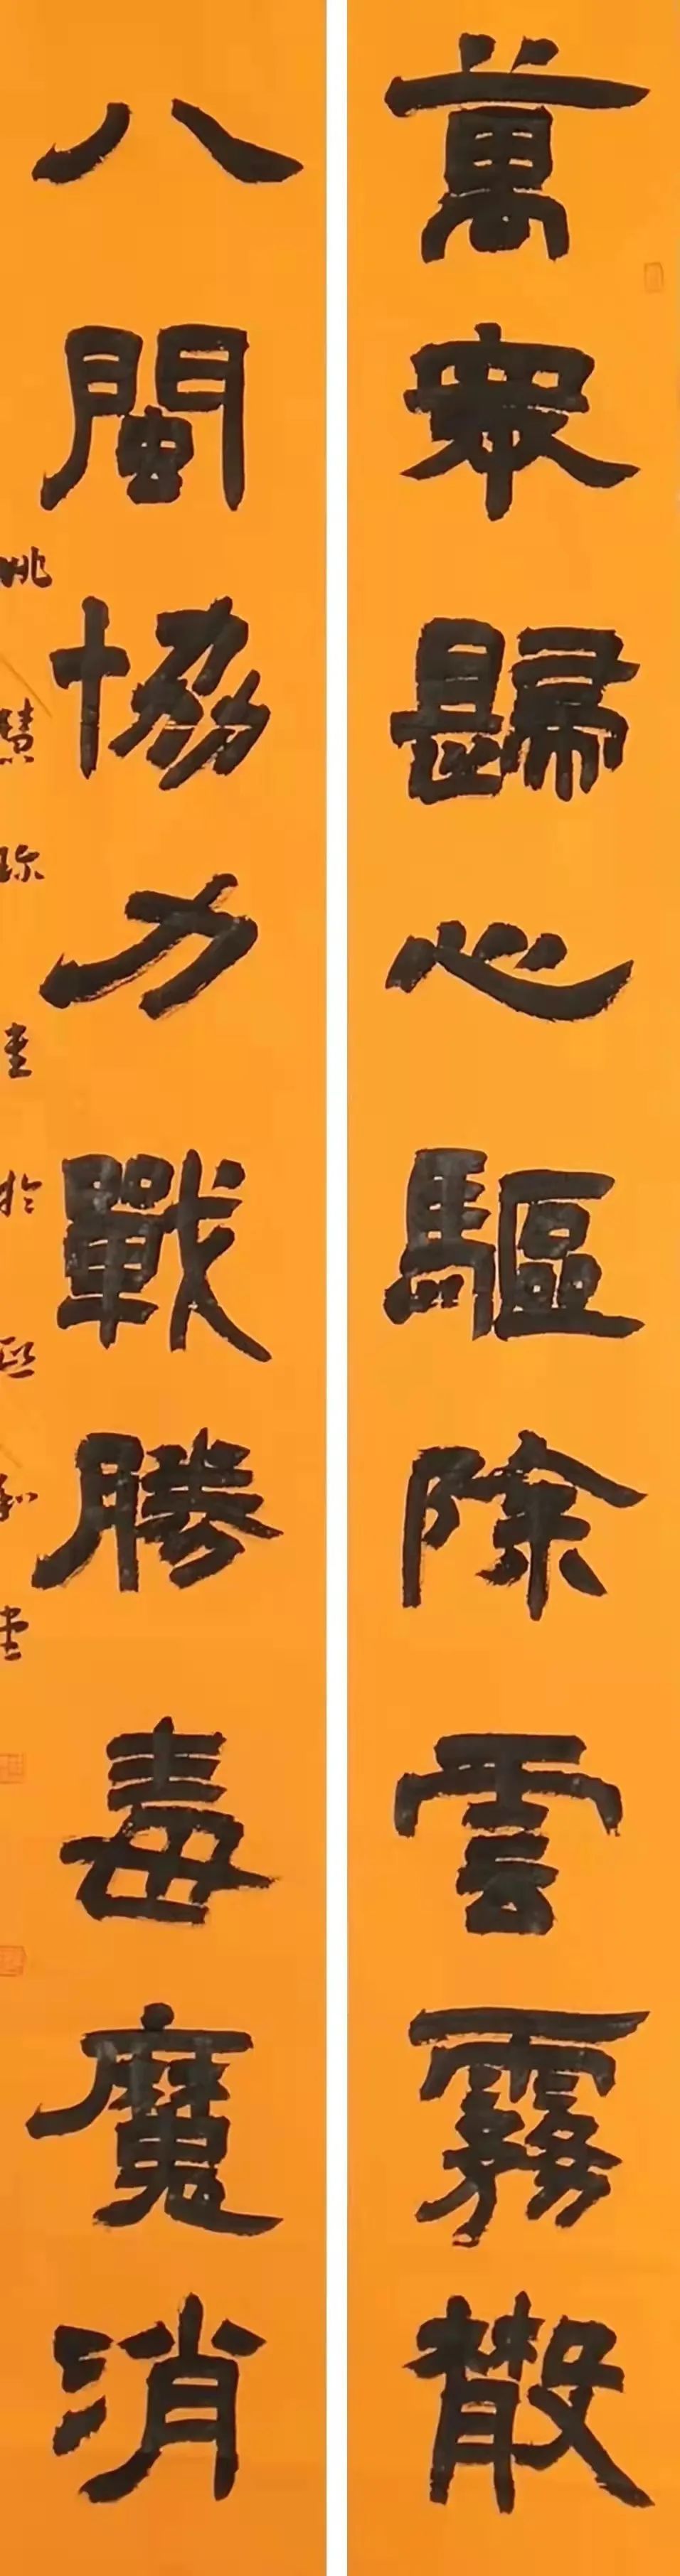 萬眾歸心驅除雲霧散
八閩協力戰勝毒魔消
姚慧珍書於熙和堂